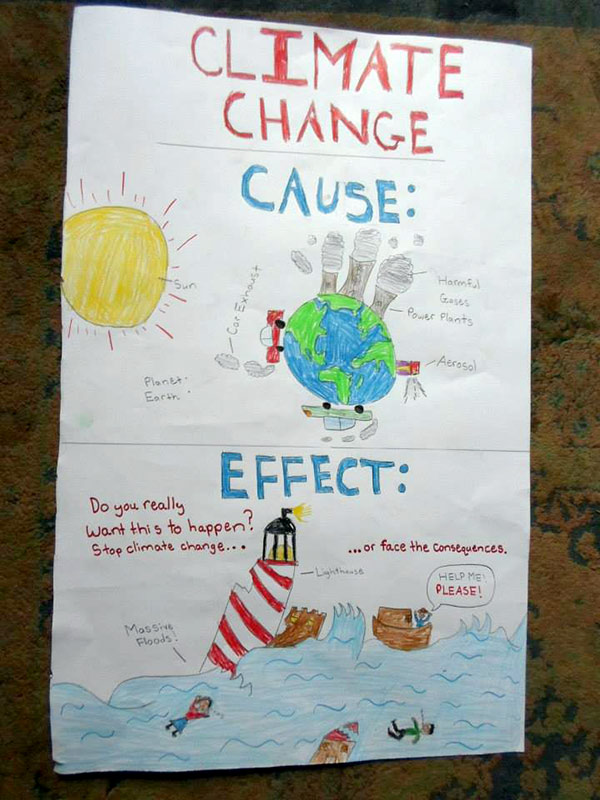 CLIMATE
CHANGE
CAUSE:
Sun
Car Exhaust
Harmful
Gases
Power Plants
Aerosol
Planet:
Earth
EFFECT:
Do you really
want this to happen?
Stop climate change...
...or face the consequences.
Lighthouse
HELP ME!
PLEASE!
Massive
Floods!